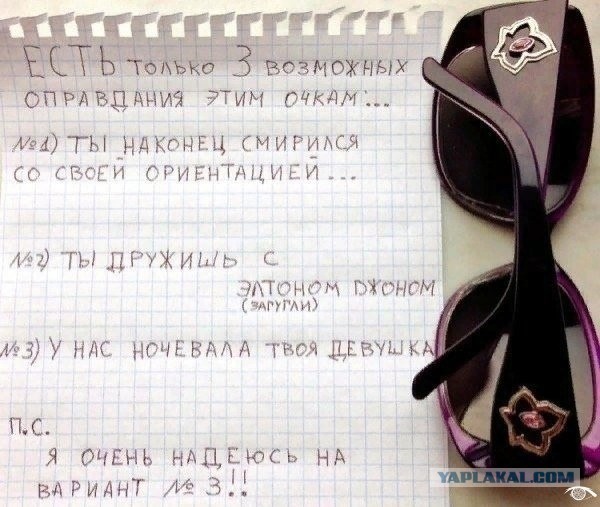 ЕСТЬ ТОЛЬКО 3 ВОЗМОЖНЫХ
ОПРАВДАНИЯ ЭТИМ ОЧКАМ...
№1) ТЫ НАКОНЕЦ СМИРИЛСЯ
СО СВОЕЙ ОРИЕНТАЦИЕЙ...
№2) ТЫ ДРУЖИШЬ С
ЭЛТОНОМ ДЖОНОМ
(ЗАГУГЛИ)
№3) У НАС НОЧЕВАЛА ТВОЯ ДЕВУШКА
П.С.
Я ОЧЕНЬ НАДЕЮСЬ НА
ВАРИАНТ № 3!!
YAPLAKAL.COM